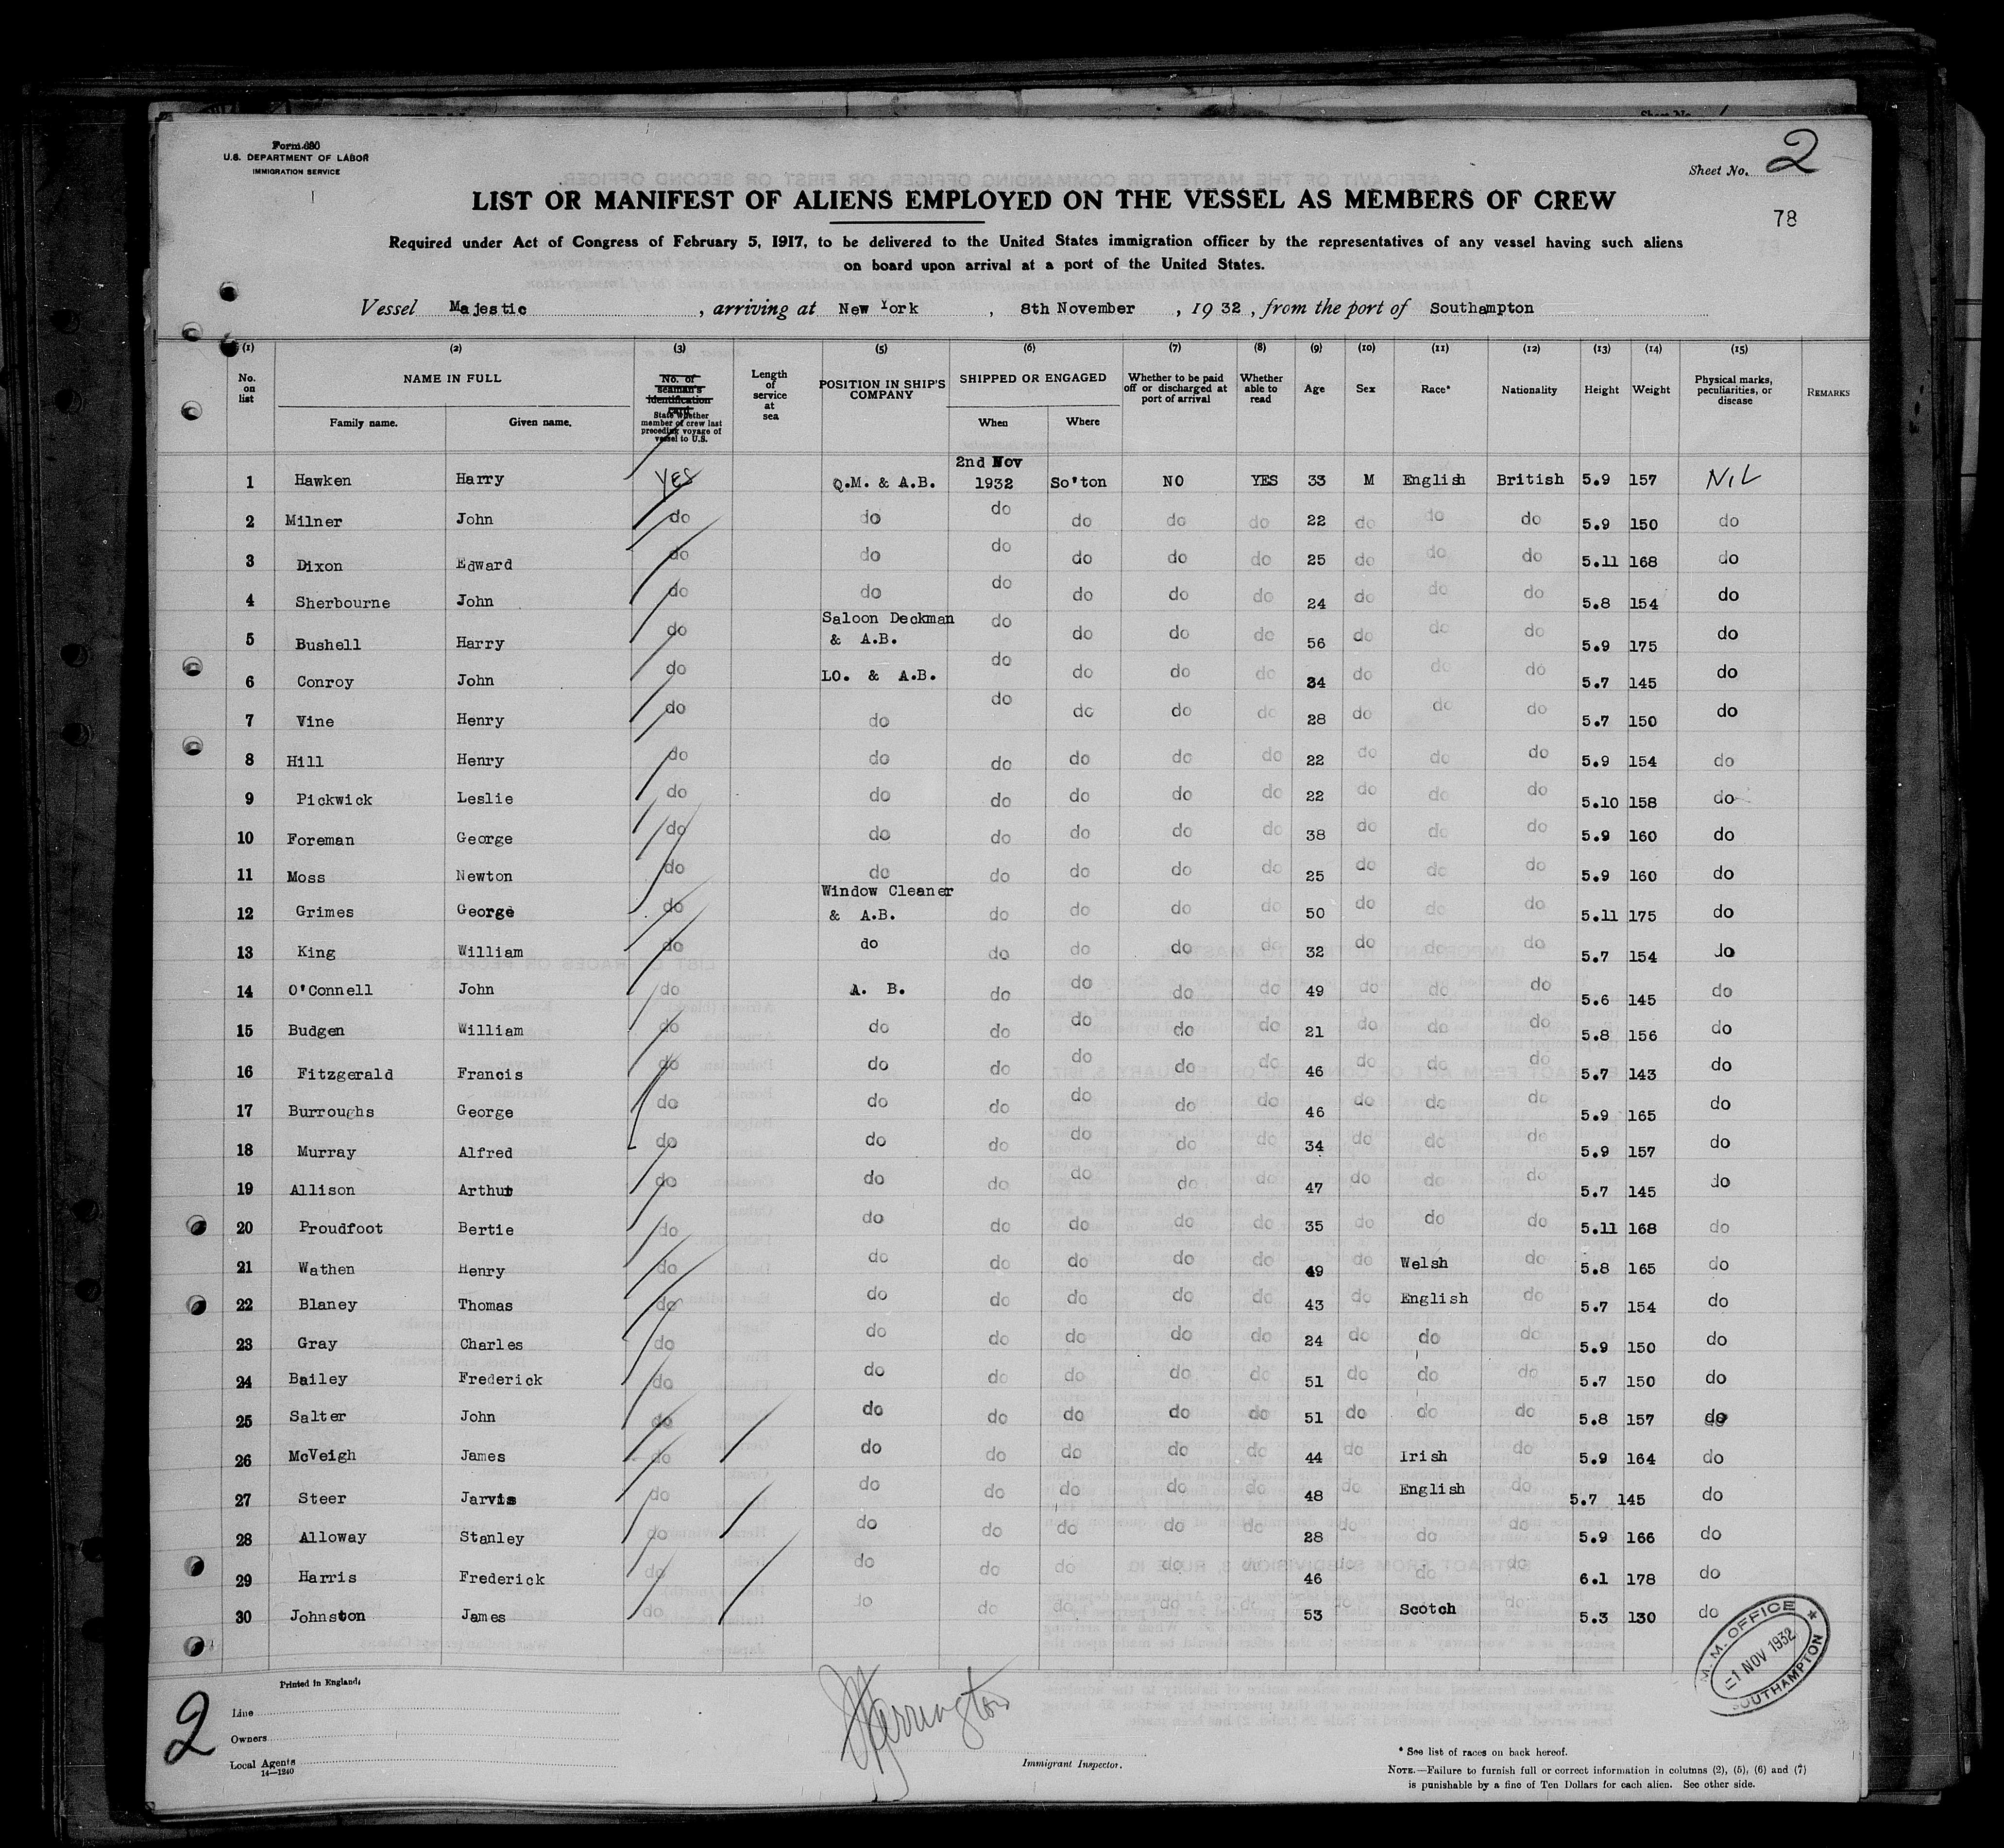 Form 680
U.S. DEPARTMENT OF LABOR
IMMIGRATION SERVICE
Sheet No. 2
LIST OR MANIFEST OF ALIENS EMPLOYED ON THE VESSEL AS MEMBERS OF CREW
78
Required under Act of Congress of February 5, 1917, to be delivered to the United States immigration officer by the representatives of any vessel having such aliens
on board upon arrival at a port of the United States.
Vessel Majestic , arriving at New York , 8th November , 19 32 , from the port of Southampton
(1) (2) (3) (5) (6) (7) (8) (9) (10) (11) (12) (13) (14) (15)
No. on list NAME IN FULL Family name. Given name. No. of seaman's identification card State whether member of crew last preceding voyage of vessel to U.S. Length of service at sea POSITION IN SHIP'S COMPANY SHIPPED OR ENGAGED When Where Whether to be paid off or discharged at port of arrival Whether able to read Age Sex Race* Nationality Height Weight Physical marks, peculiarities, or disease REMARKS
1 Hawken Harry YES Q.M. & A.B. 2nd Nov 1932 So'ton NO YES 33 M English British 5.9 157 NiL
2 Milner John do do do do do do 22 do do do 5.9 150 do
3 Dixon Edward do do do do do do 25 do do do 5.11 168 do
4 Sherbourne John do do do do do do 24 do do do 5.8 154 do
5 Bushell Harry do Saloon Deckman & A.B. do do do do 56 do do do 5.9 175 do
6 Conroy John do LO. & A.B. do do do do 34 do do do 5.7 145 do
7 Vine Henry do do do do do do 28 do do do 5.7 150 do
8 Hill Henry do do do do do do 22 do do do 5.9 154 do
9 Pickwick Leslie do do do do do do 22 do do do 5.10 158 do
10 Foreman George do do do do do do 38 do do do 5.9 160 do
11 Moss Newton do do do do do do 25 do do do 5.9 160 do
12 Grimes George do Window Cleaner & A.B. do do do do 50 do do do 5.11 175 do
13 King William do do do do do do 32 do do do 5.7 154 do
14 O'Connell John do A. B. do do do do 49 do do do 5.6 145 do
15 Budgen William do do do do do do 21 do do do 5.8 156 do
16 Fitzgerald Francis do do do do do do 46 do do do 5.7 143 do
17 Burroughs George do do do do do do 46 do do do 5.9 165 do
18 Murray Alfred do do do do do do 34 do do do 5.9 157 do
19 Allison Arthur do do do do do do 47 do do do 5.7 145 do
20 Proudfoot Bertie do do do do do do 35 do do do 5.11 168 do
21 Wathen Henry do do do do do do 49 do Welsh do 5.8 165 do
22 Blaney Thomas do do do do do do 43 do English do 5.7 154 do
23 Gray Charles do do do do do do 24 do do do 5.9 150 do
24 Bailey Frederick do do do do do do 51 do do do 5.7 150 do
25 Salter John do do do do do do 51 do do do 5.8 157 do
26 McVeigh James do do do do do do 44 do Irish do 5.9 164 do
27 Steer Jarvis do do do do do do 48 do English do 5.7 145 do
28 Alloway Stanley do do do do do do 28 do do do 5.9 166 do
29 Harris Frederick do do do do do do 46 do do do 6.1 178 do
30 Johnston James do do do do do do 53 do Scotch do 5.3 130 do
M. M. OFFICE
1 NOV 1932
SOUTHAMPTON
Printed in England
2
Line
Owners
Local Agents
14—1240
Immigrant Inspector.
* See list of races on back hereof.
NOTE.—Failure to furnish full or correct information in columns (2), (5), (6) and (7)
is punishable by a fine of Ten Dollars for each alien. See other side.